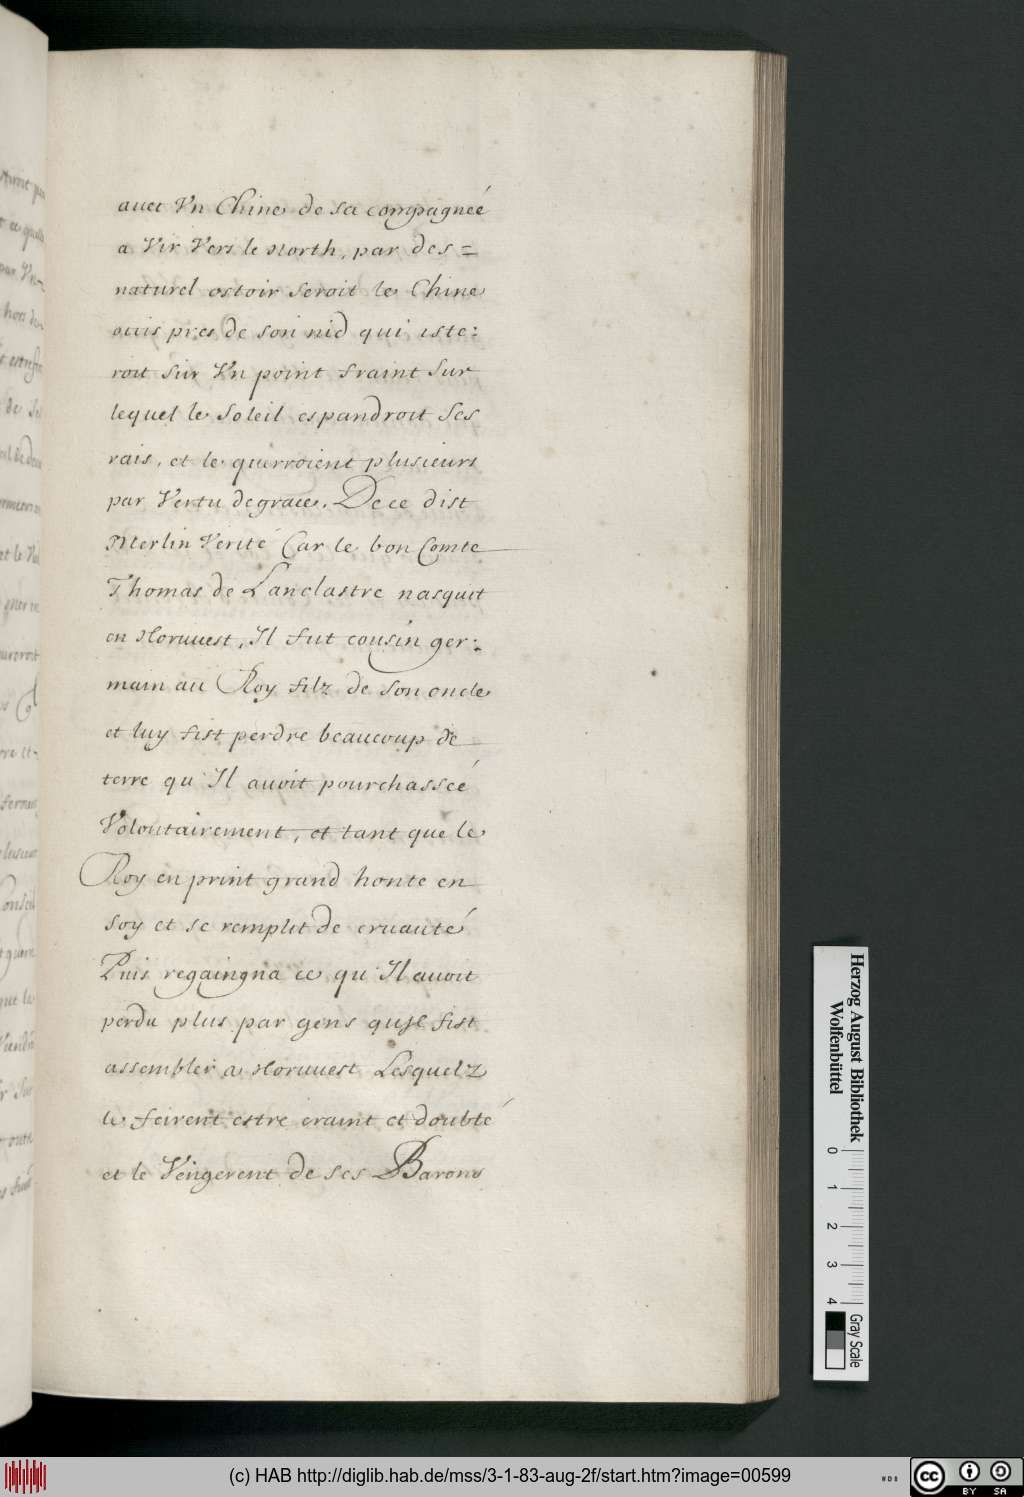 auet Vn Chine de sa compagneé
a Vir Vers le North, par des=
naturel ostoir seroit le Chine
occis pres de son nid qui iste:
roit sur Vn point fraint sur
lequel le soleil espandroit ses
rais, et le querroient plusieurs
par Vertu de grace. De ce dist
Merlin Verité Car le bon Comte
Thomas de Lanclastre nasquit
en Noruuest, Il fut cousin ger:
main au Roy filz de son oncle
et luy fist perdre beaucoup de
terre qu'Il auoit pourchasseé
Volontairement, et tant que le
Roy en print grand honte en
soy et se remplit de cruauté
Puis regaingna ce qu'Il auoit
perdu plus par gens qu'Il fist
assembler a Noruuest Lesquelz
le feirent estre craint et doubté
et le Vengerent de ses Barons
Herzog August Bibliothek
Wolfenbüttel
0 1 2 3 4
Gray Scale
(c) HAB http://diglib.hab.de/mss/3-1-83-aug-2f/start.htm?image=00599
cc BY SA